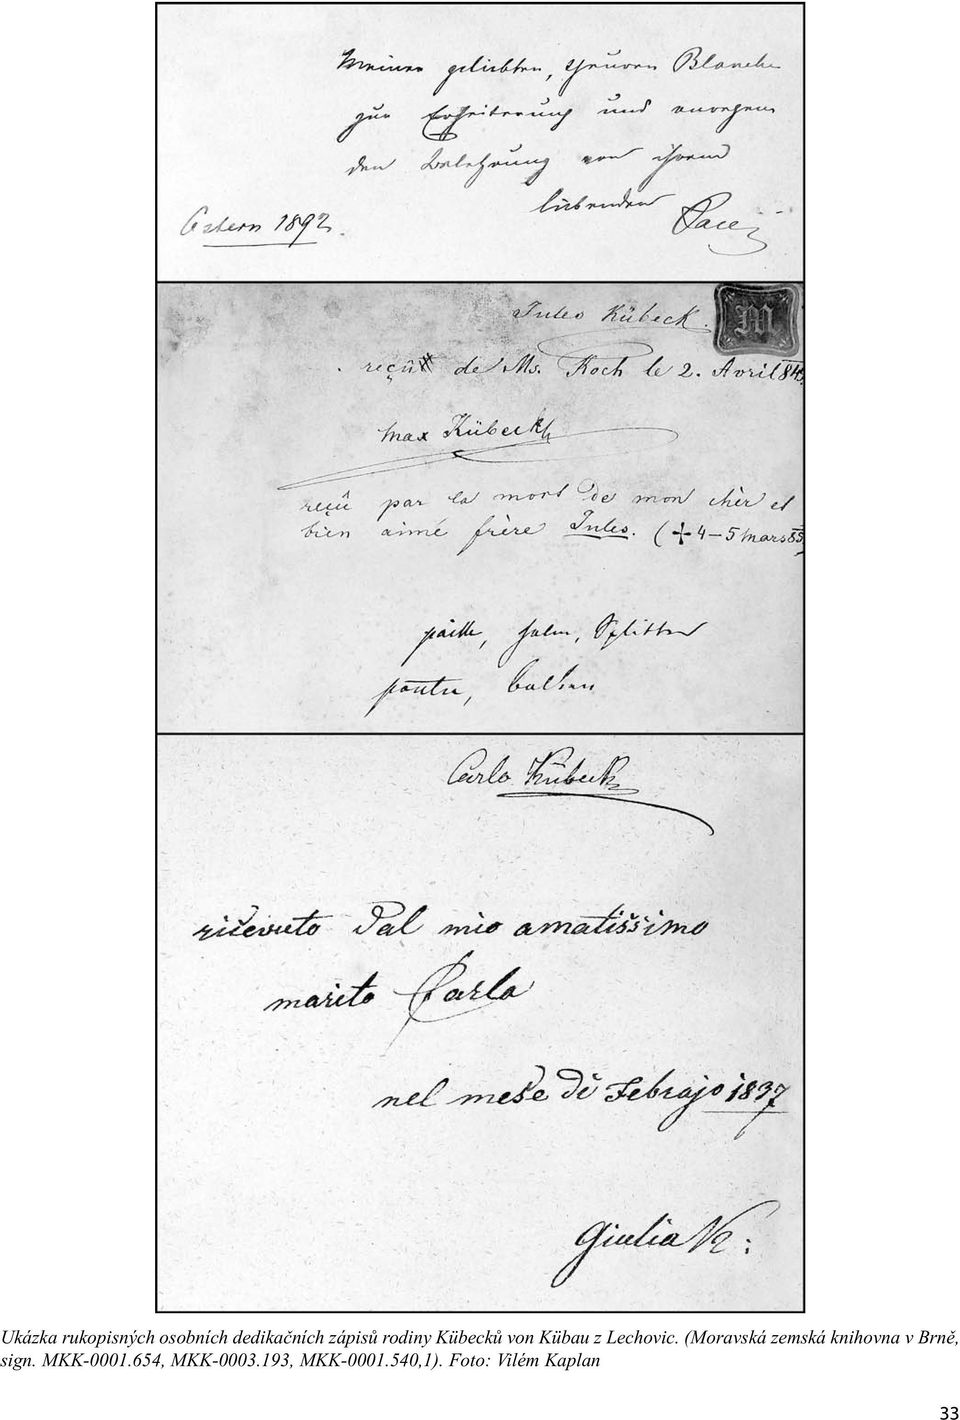 Meiner geliebten, theuren Blanche
zur Erheiterung und
den Belehrung von ihrem
liebenden
Ostern 1892.
Jules Kübeck.
M
reçû de Ms. Koch le 2. Avril 84.
Max Kübeck
reçû par la mort de mon chèr et
bien aimé frère Jules. (+ 4–5 Mars 85)
paille, Halm, Splitter
poutre, Balken
Carlo Kübeck
ricevuto Dal mio amatissimo
marito Carlo
nel mese Di Febrajo 1837
Giulia K:
Ukázka rukopisných osobních dedikačních zápisů rodiny Kübecků von Kübau z Lechovic. (Moravská zemská knihovna v Brně,
sign. MKK-0001.654, MKK-0003.193, MKK-0001.540,1). Foto: Vilém Kaplan
33